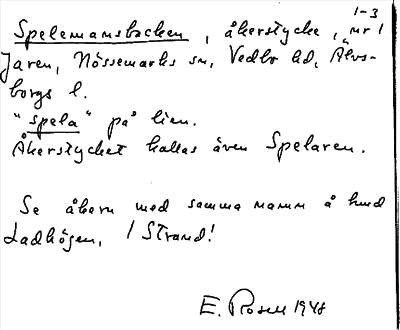 1-3
Spelemansbacken, åkerstycke, nr 1
Jaren, Nössemarks sn, Vedbo hd, Älvs-
borgs l.
"spela" på lien.
Åkerstycket kallas även Spelaren.
Se åkern med samma namn å
Ladhögen, 1 Strand!
E. Rosell 1948